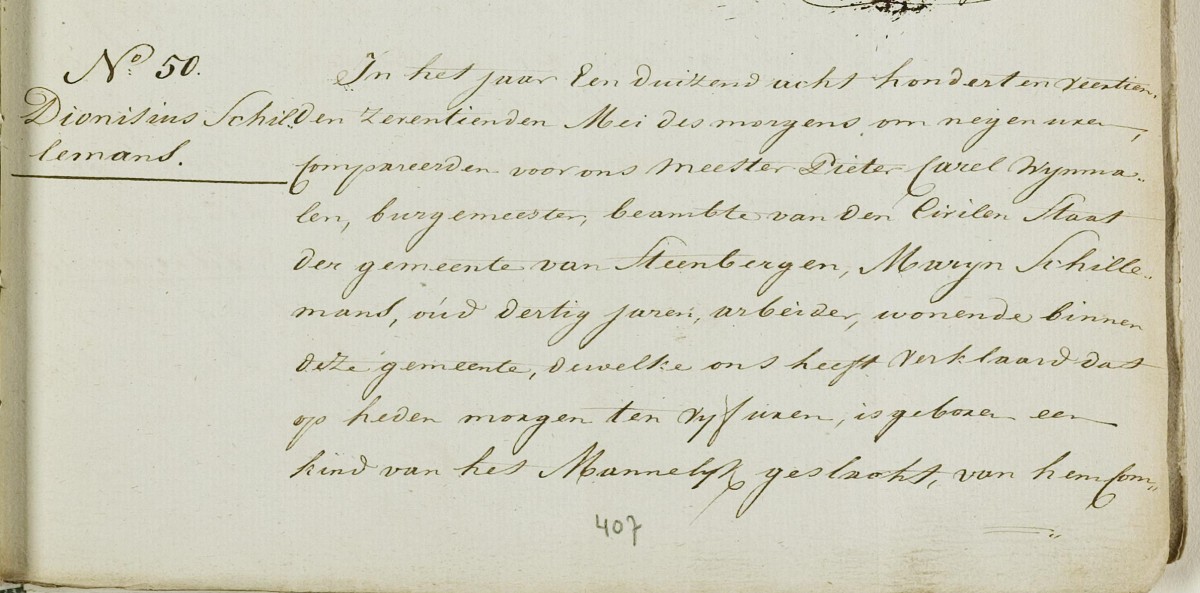 No. 50.
Dionisius Schil„
lemans.
In het jaar Een duizend acht hondert en veertien.
den zeventienden Mei des morgens om negen uren,
Compareerden voor ons Meester Pieter Carel Wijnma„
len, burgemeester, beambte van den Civilen Staat
der gemeente van Steenbergen, Maryn Schille„
mans, oúd dertig jaren, arbeider, wonende binnen
deze gemeente, dewelke ons heeft verklaard dat
op heden morgen ten vyf uren, is geboren een
kind van het Mannelyk geslacht, van hem Com„
407